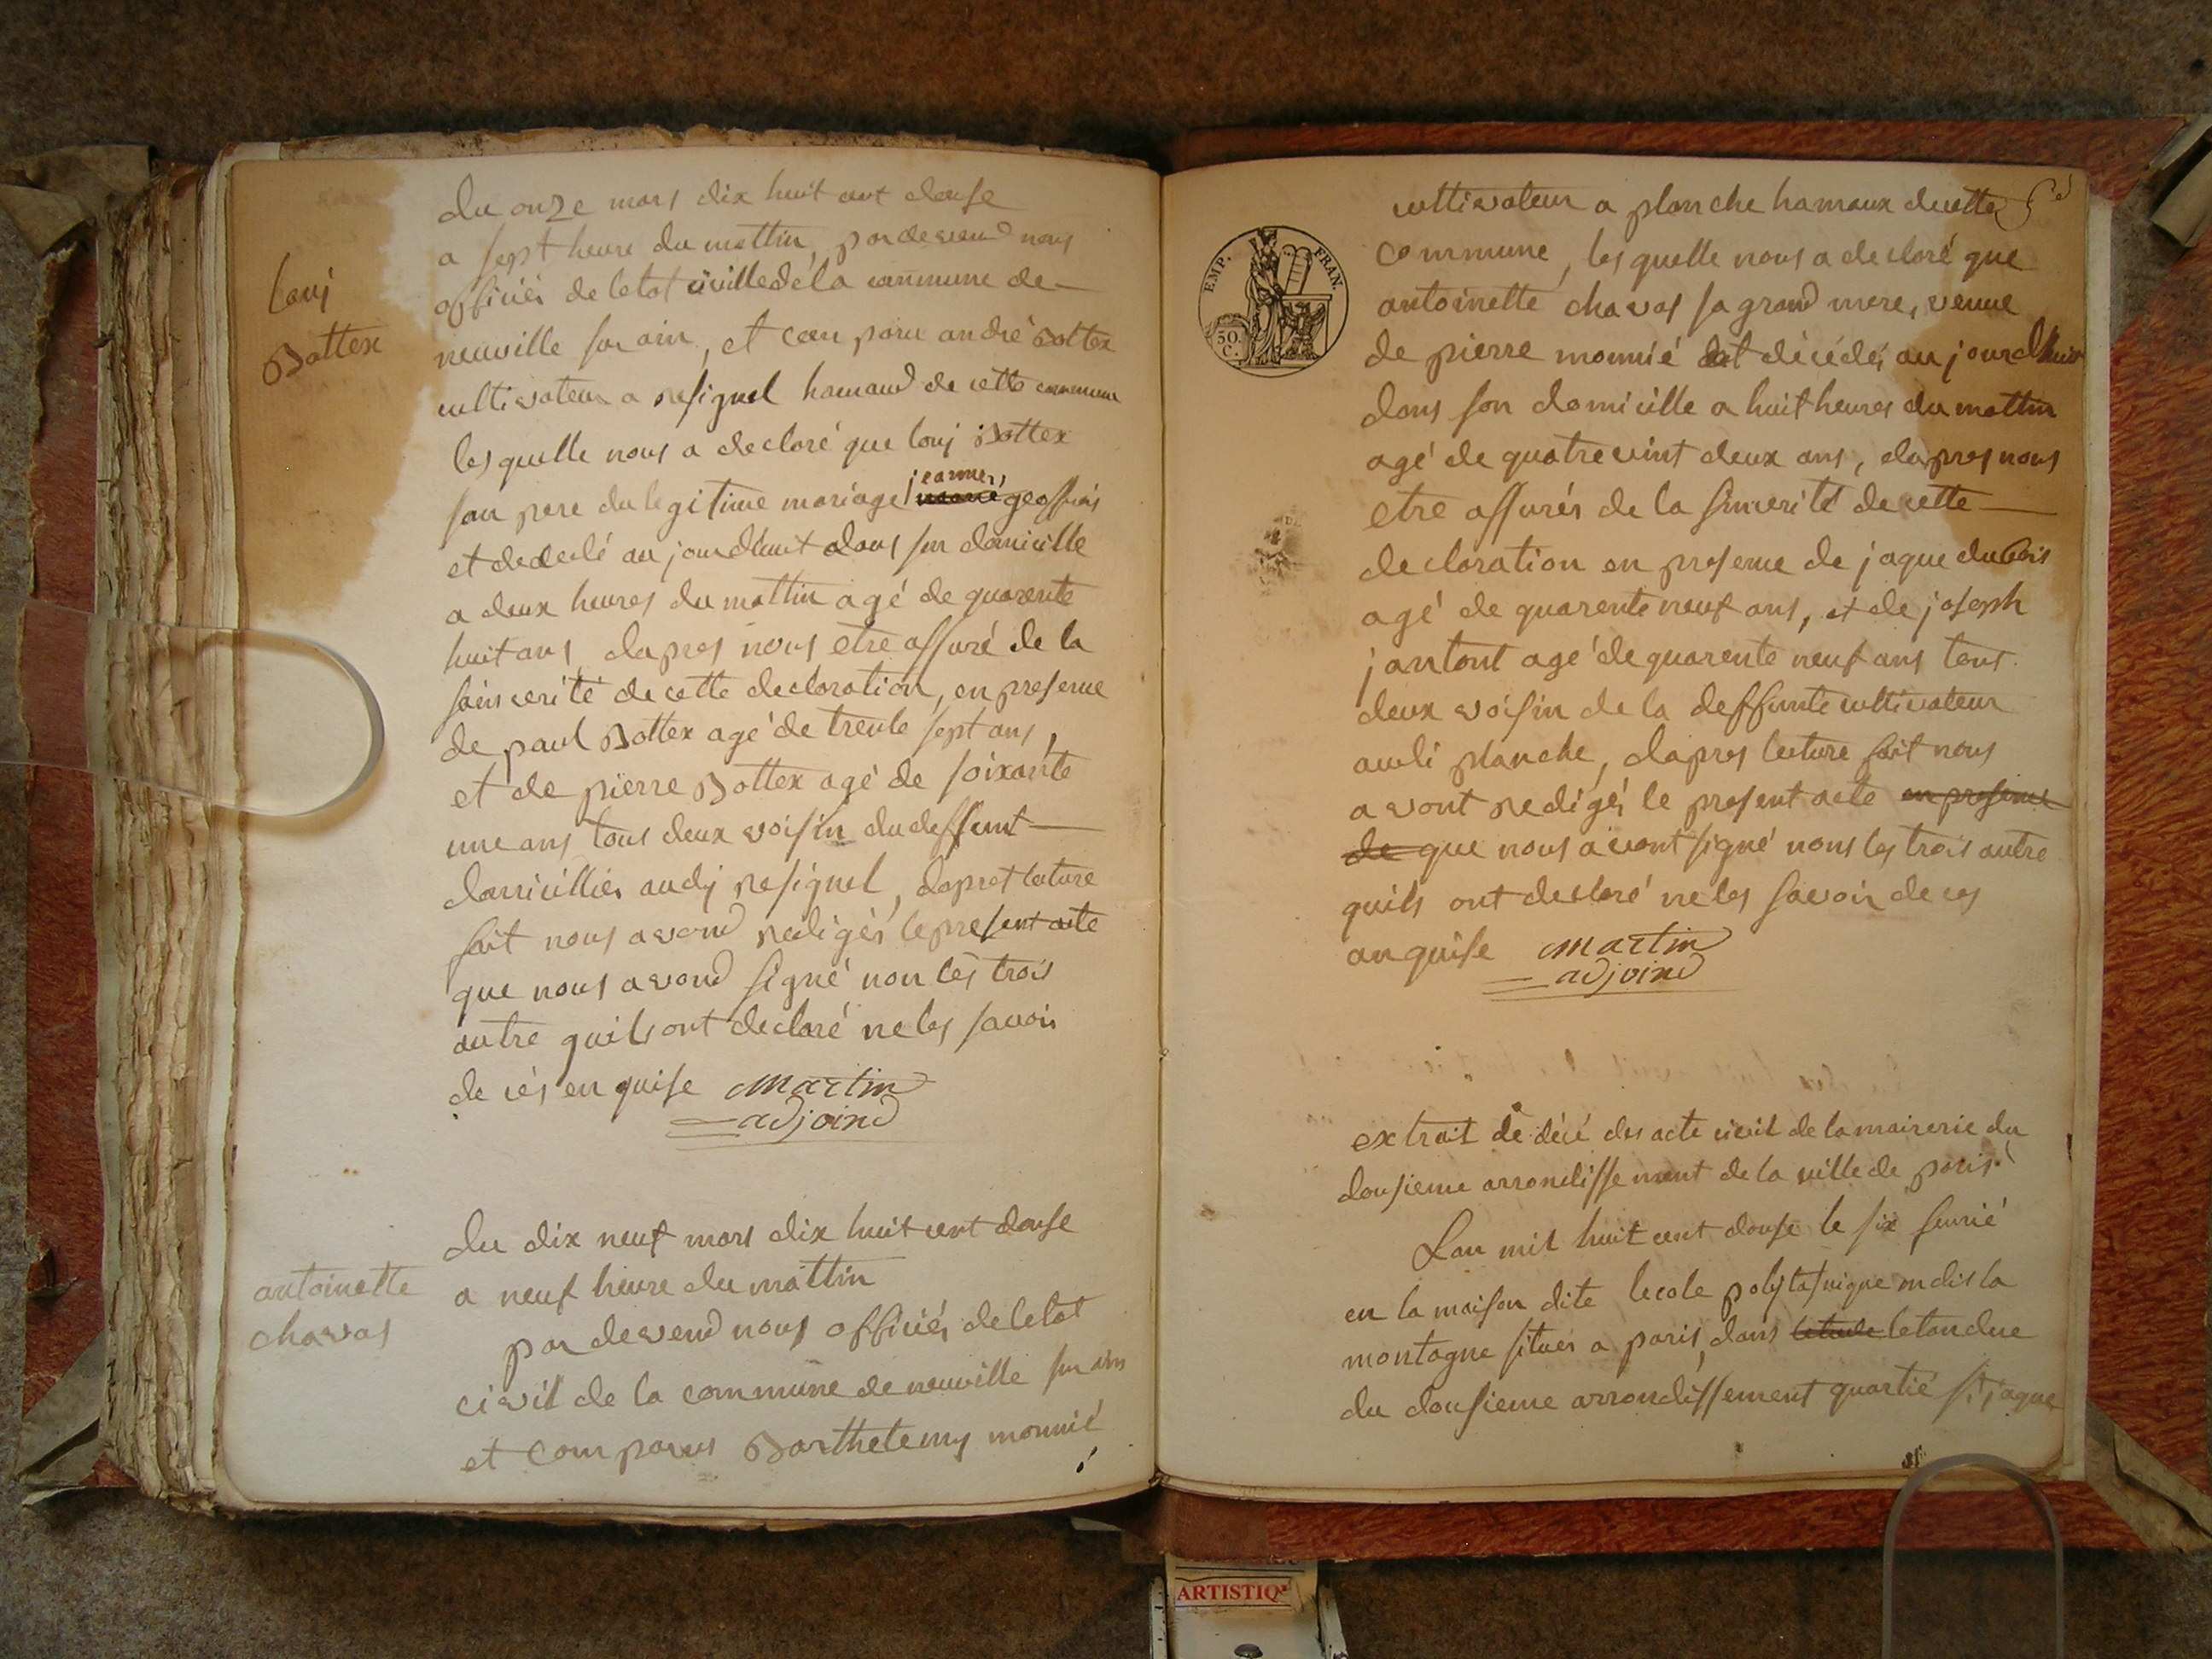 louj
Bottex
du onze mars dix huit cent douse
a sept heure du mattin, pardevend nous
officiér de letat civille de la commune de
neuville sur ain, et comparu andré Bottex
cultivateur a resignel hamaud de cette commune
lesquelle nous a declaré que louj Bottex
son pere du legitime mariage jeanne, marié geoffrais
et dedecdé au jourdhuit dans son domicille
a deux heures du mattin agé de quarente
huit ans, dapres nous etre assuré de la
sainserité de cette declaration, en presence
de paul Bottex agé de trente sept ans,
et de pierre Bottex agé de soixante
une ans tous deux voisin du deffunt
domicilliér audj resignel, dapret lecture
fait nous avond redigér le present acte
que nous avond signé non lés trois
autre quils ont declaré ne les savoir
de cés en quise Martin
adjoind
antoinette
chavas
du dix neuf mars dix huit cent douse
a neuf heure du mattin
par devend nous officiér de letat
civil de la commune de neuville sur ain
et comparus Barthelemy monnié
EMP. FRAN.
50. C.
cultivateur a planche hamaux de cette
commune, lesquelle nous a declaré que
antoinette chavas sa grand mere, veuve
de pierre monnié et décédér au jourdhuit
dans son domicille a huit heures du mattin
agé de quatrevint deux ans, dapres nous
etre assurér de la sincerité de cette
declaration en presence de jaque dubois
agé de quarente neuf ans, et de joseph
jantont agé de quarente neuf ans tous
deux voisin de la deffunte cultivateur
audi planche, dapres lecture fait nous
avont redigér le present acte en presence
de que nous avont signé nons les trois autre
quils ont declaré ne les savoir de ces
anquise Martin
adjoind
extrait de décé des acte civil de la mairerie du
dousieme arrondissement de la ville de paris
Lan mil huit cent douse le six fevrié
en la maison dite lecole polytasnique mdis la
montagne situér a paris, dans letandue
du dousieme arrondissement quartié st jaque
ARTISTIQ